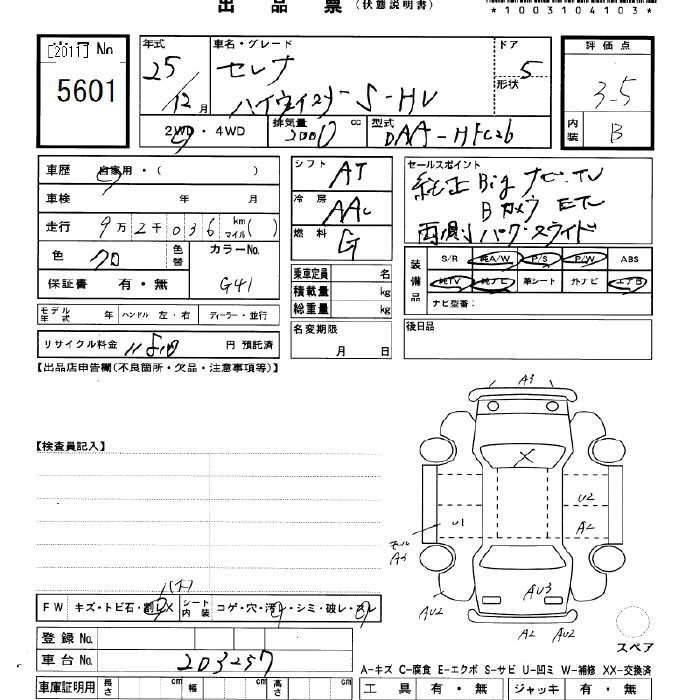 出 品 票 (状態説明書)
*1003104103*
[2011] No
5601
年式 25/12月
車名・グレード セレナ
ハイウェイスター S-HV
ドア 形状 5
評価点 3-5
内装 B
2WD・4WD
排気量 2000 cc
型式 DAA-HFC26
車歴 自家用・( )
車検 年 月
走行 9万2千036 km マイル( )
色 クロ 色替 カラーNo. G41
保証書 有・無
シフト AT
冷房 AAC
燃料 G
乗車定員 名
積載量 kg
総重量 kg
セールスポイント
純正Bigナビ.TV
Bカメラ ETC
両側パワースライド
装備品 S/R 純A/W P/S P/W ABS
純TV 純ナビ 革シート 外ナビ エアB
ナビ型番:
モデル年式 年 ハンドル 左・右 ディーラー・並行
名変期限 月 日
後日品
リサイクル料金 円 預託済
【出品店申告欄(不良箇所・欠品・注意事項等)】
A3
【検査員記入】
X
U2
U1
A2
モール A3
AU3
AU2
A2 AU2
スペア
FW キズ・トビ石・割レX シート内装 コゲ・穴・汚レ・シミ・破レ・スレ
登録 No.
車台 No. 203257
A-キズ C-腐食 E-エクボ S-サビ U-凹ミ W-補修 XX-交換済
車庫証明用 長さ cm 幅 cm 高さ cm
工具 有・無 ジャッキ 有・無